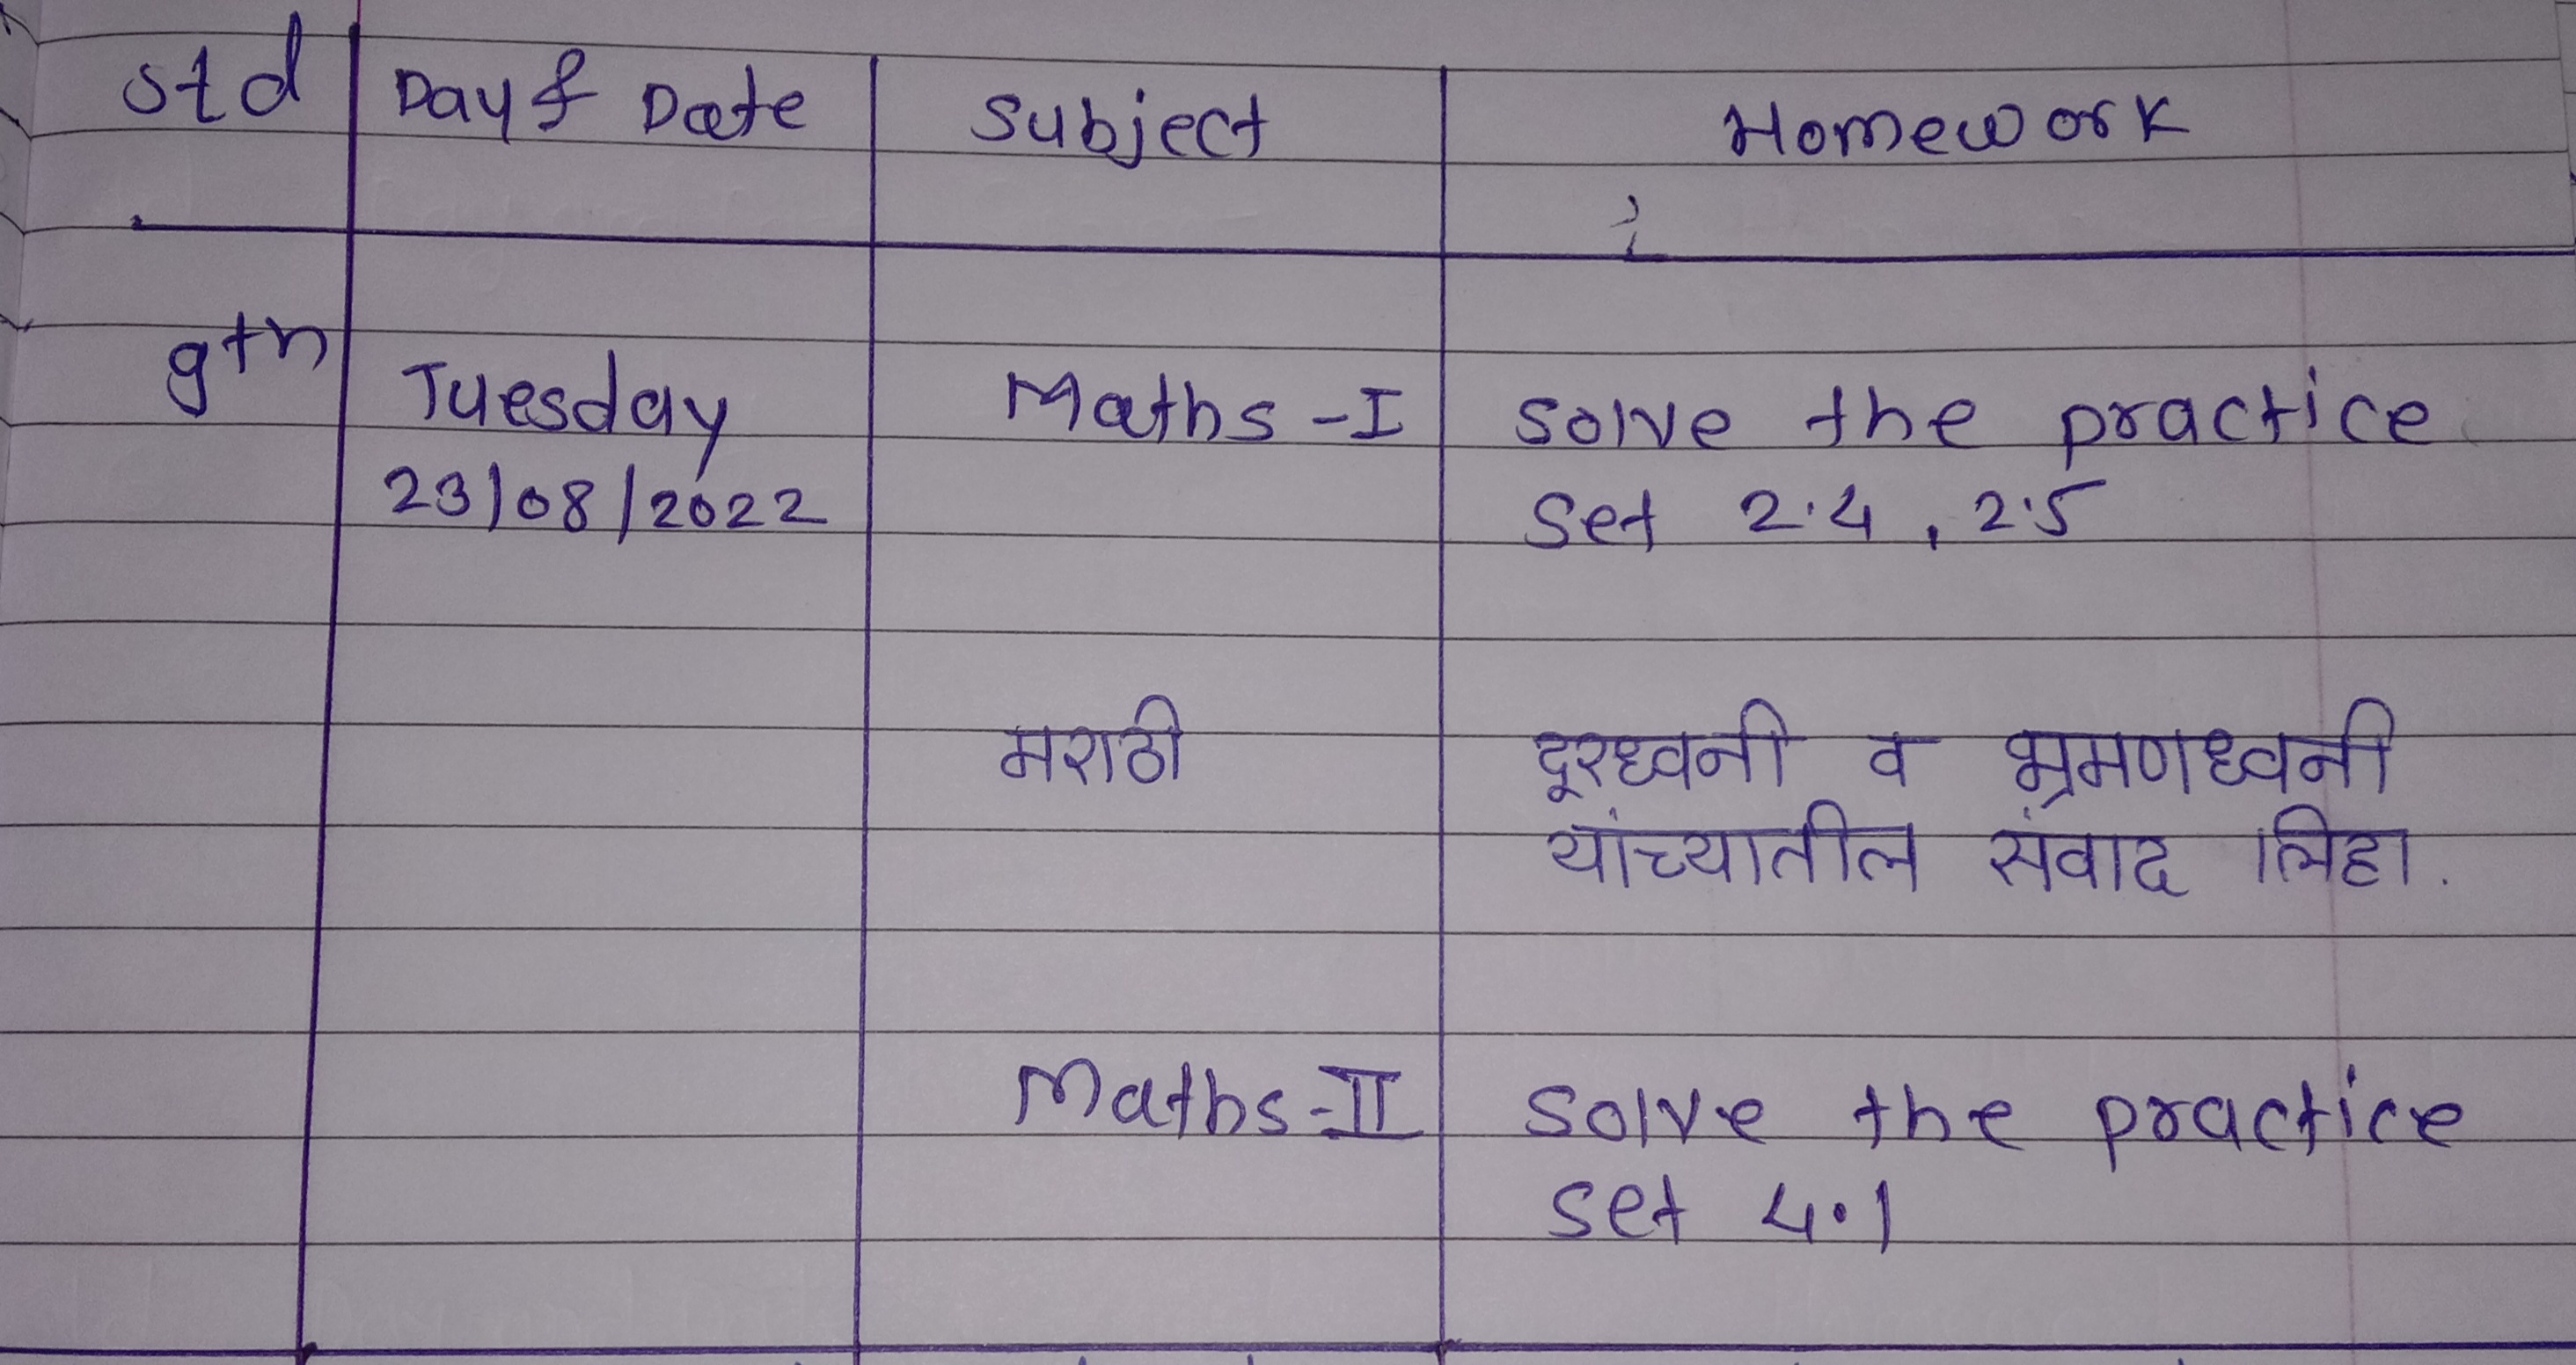 std Day & Date Subject Homework
9th Tuesday Maths-I solve the practice
23/08/2022 set 2.4, 2.5
मराठी दूरध्वनी व भ्रमणध्वनी
यांच्यातील संवाद लिहा.
Maths-II solve the practice
set 4.1